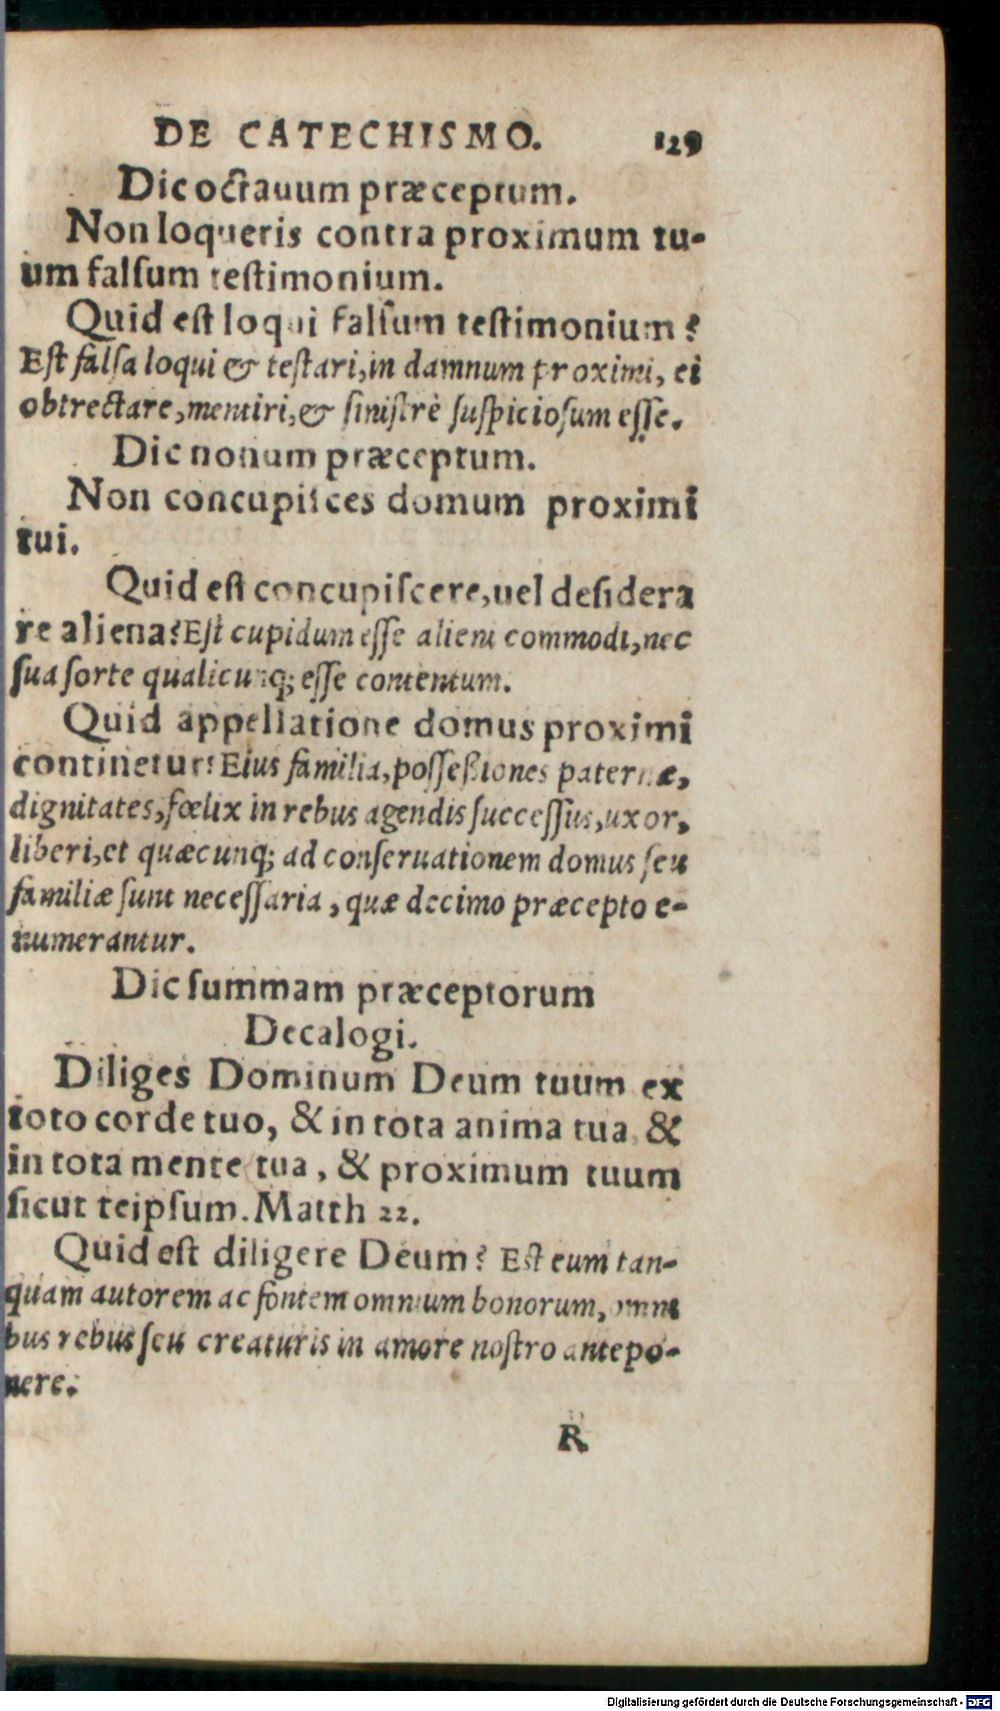 DE CATECHISMO. 129
Dic octauum præceptum.
Non loqueris contra proximum tu-
um falſum teſtimonium.
Quid eſt loqui falſum teſtimonium?
Eſt falſa loqui & teſtari, in damnum proximi, ei
obtrectare, mentiri, & ſiniſtrè ſuſpicioſum eſſe.
Dic nonum præceptum.
Non concupiſces domum proximi
tui.
Quid eſt concupiſcere, uel deſidera
re aliena? Eſt cupidum eſſe alieni commodi, nec
ſua ſorte qualicunq; eſſe contentum.
Quid appellatione domus proximi
continetur? Eius familia, poſſeßiones paternæ,
dignitates, fœlix in rebus agendis ſucceſſus, uxor,
liberi, et quæcunq; ad conſeruationem domus ſeu
familiæ ſunt neceſſaria, quæ decimo præcepto e-
numerantur.
Dic ſummam præceptorum
Decalogi.
Diliges Dominum Deum tuum ex
toto corde tuo, & in tota anima tua, &
in tota mente tua, & proximum tuum
ſicut teipſum. Matth 22.
Quid eſt diligere Deum? Eſt eum tan-
quam autorem ac fontem omnium bonorum, omni
bus rebus ſeu creaturis in amore noſtro antepo-
nere.
R
Digitalisierung gefördert durch die Deutsche Forschungsgemeinschaft - DFG